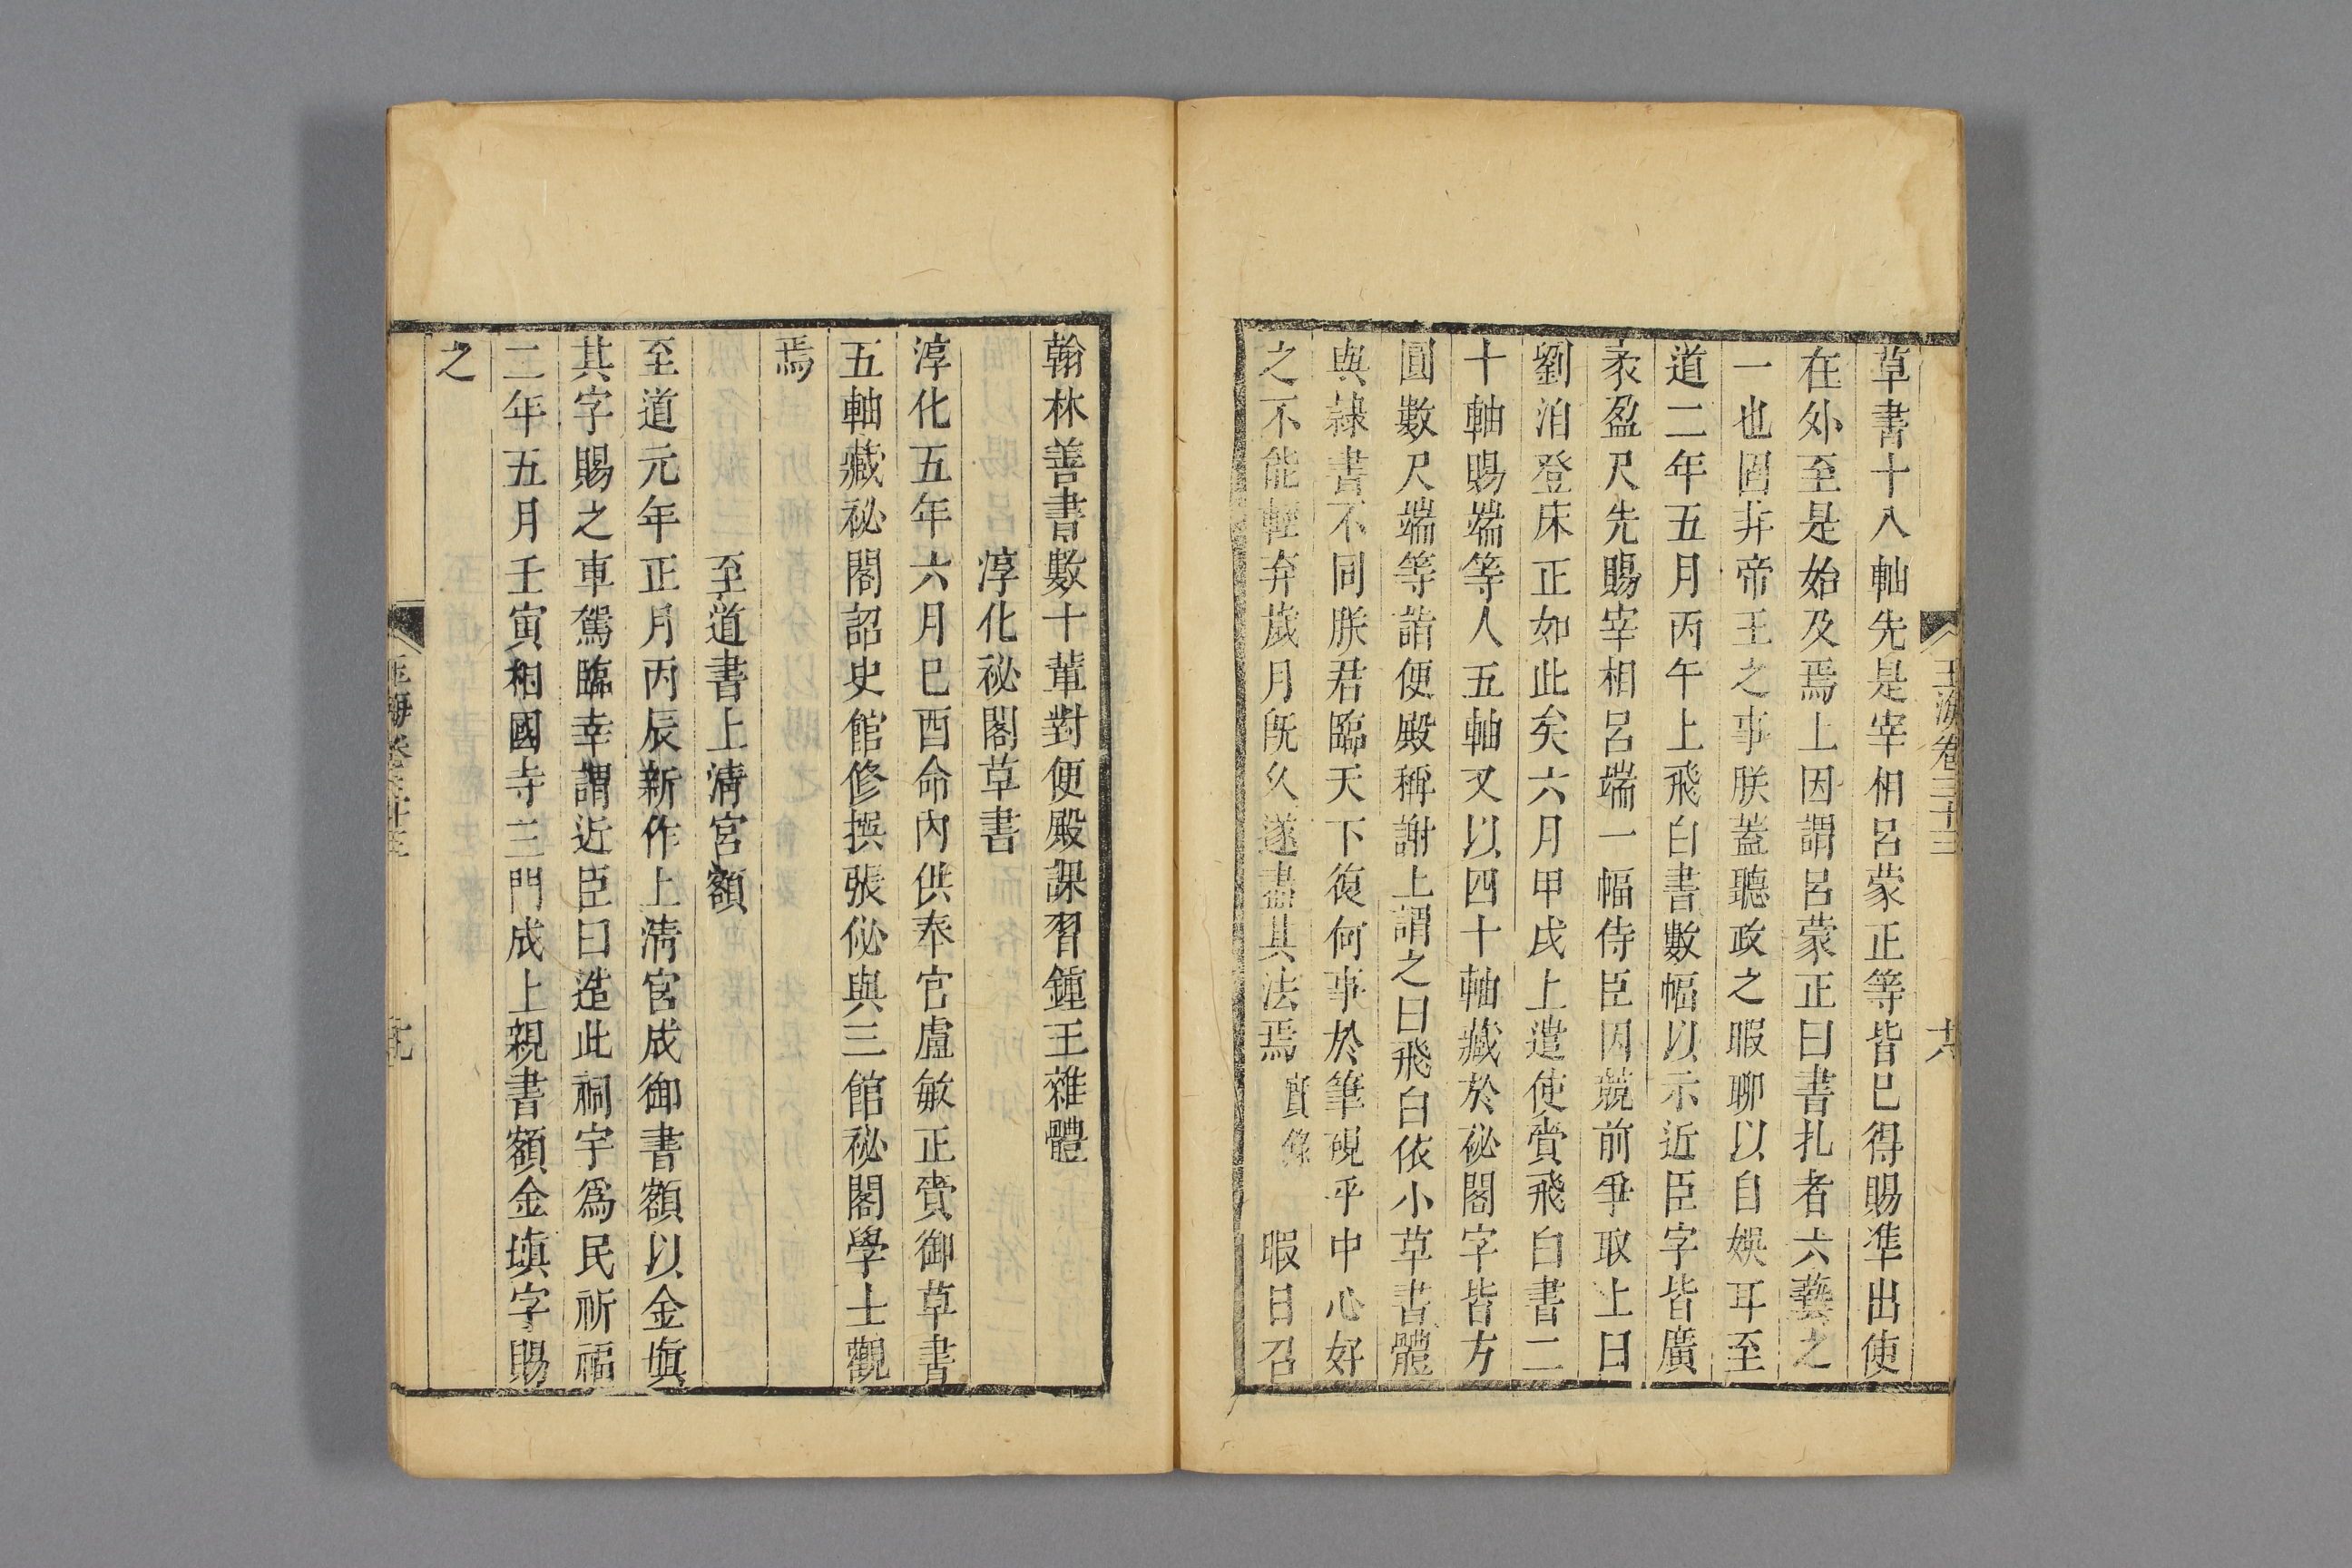 玉海卷三十三
草書十八軸先是宰相呂蒙正等皆已得賜準出使
在外至是始及焉上因謂呂蒙正曰書扎者六藝之
一也固非帝王之事朕蓋聽政之暇聊以自娛耳至
道二年五月丙午上飛白書數幅以示近臣字皆廣
袤盈尺先賜宰相呂端一幅侍臣因競前爭取上曰
劉洎登床正如此矣六月甲戌上遣使賫飛白書二
十軸賜端等人五軸又以四十軸藏於祕閣字皆方
圓數尺端等詣便殿稱謝上謂之曰飛白依小草書體
與隷書不同朕君臨天下復何事於筆硯乎中心好
之不能輕弃歲月既久遂盡其法焉 實錄 暇日召
翰林善書數十輩對便殿課習鍾王雜體
淳化祕閣草書
淳化五年六月已酉命內供奉官盧敏正賫御草書
五軸藏祕閣詔史館修撰張佖與三館祕閣學士觀
焉
至道書上清宮額
至道元年正月丙辰新作上清宮成御書額以金塡
其字賜之車駕臨幸謂近臣曰造此祠宇爲民祈福
二年五月壬寅相國寺三門成上親書額金塡字賜
之